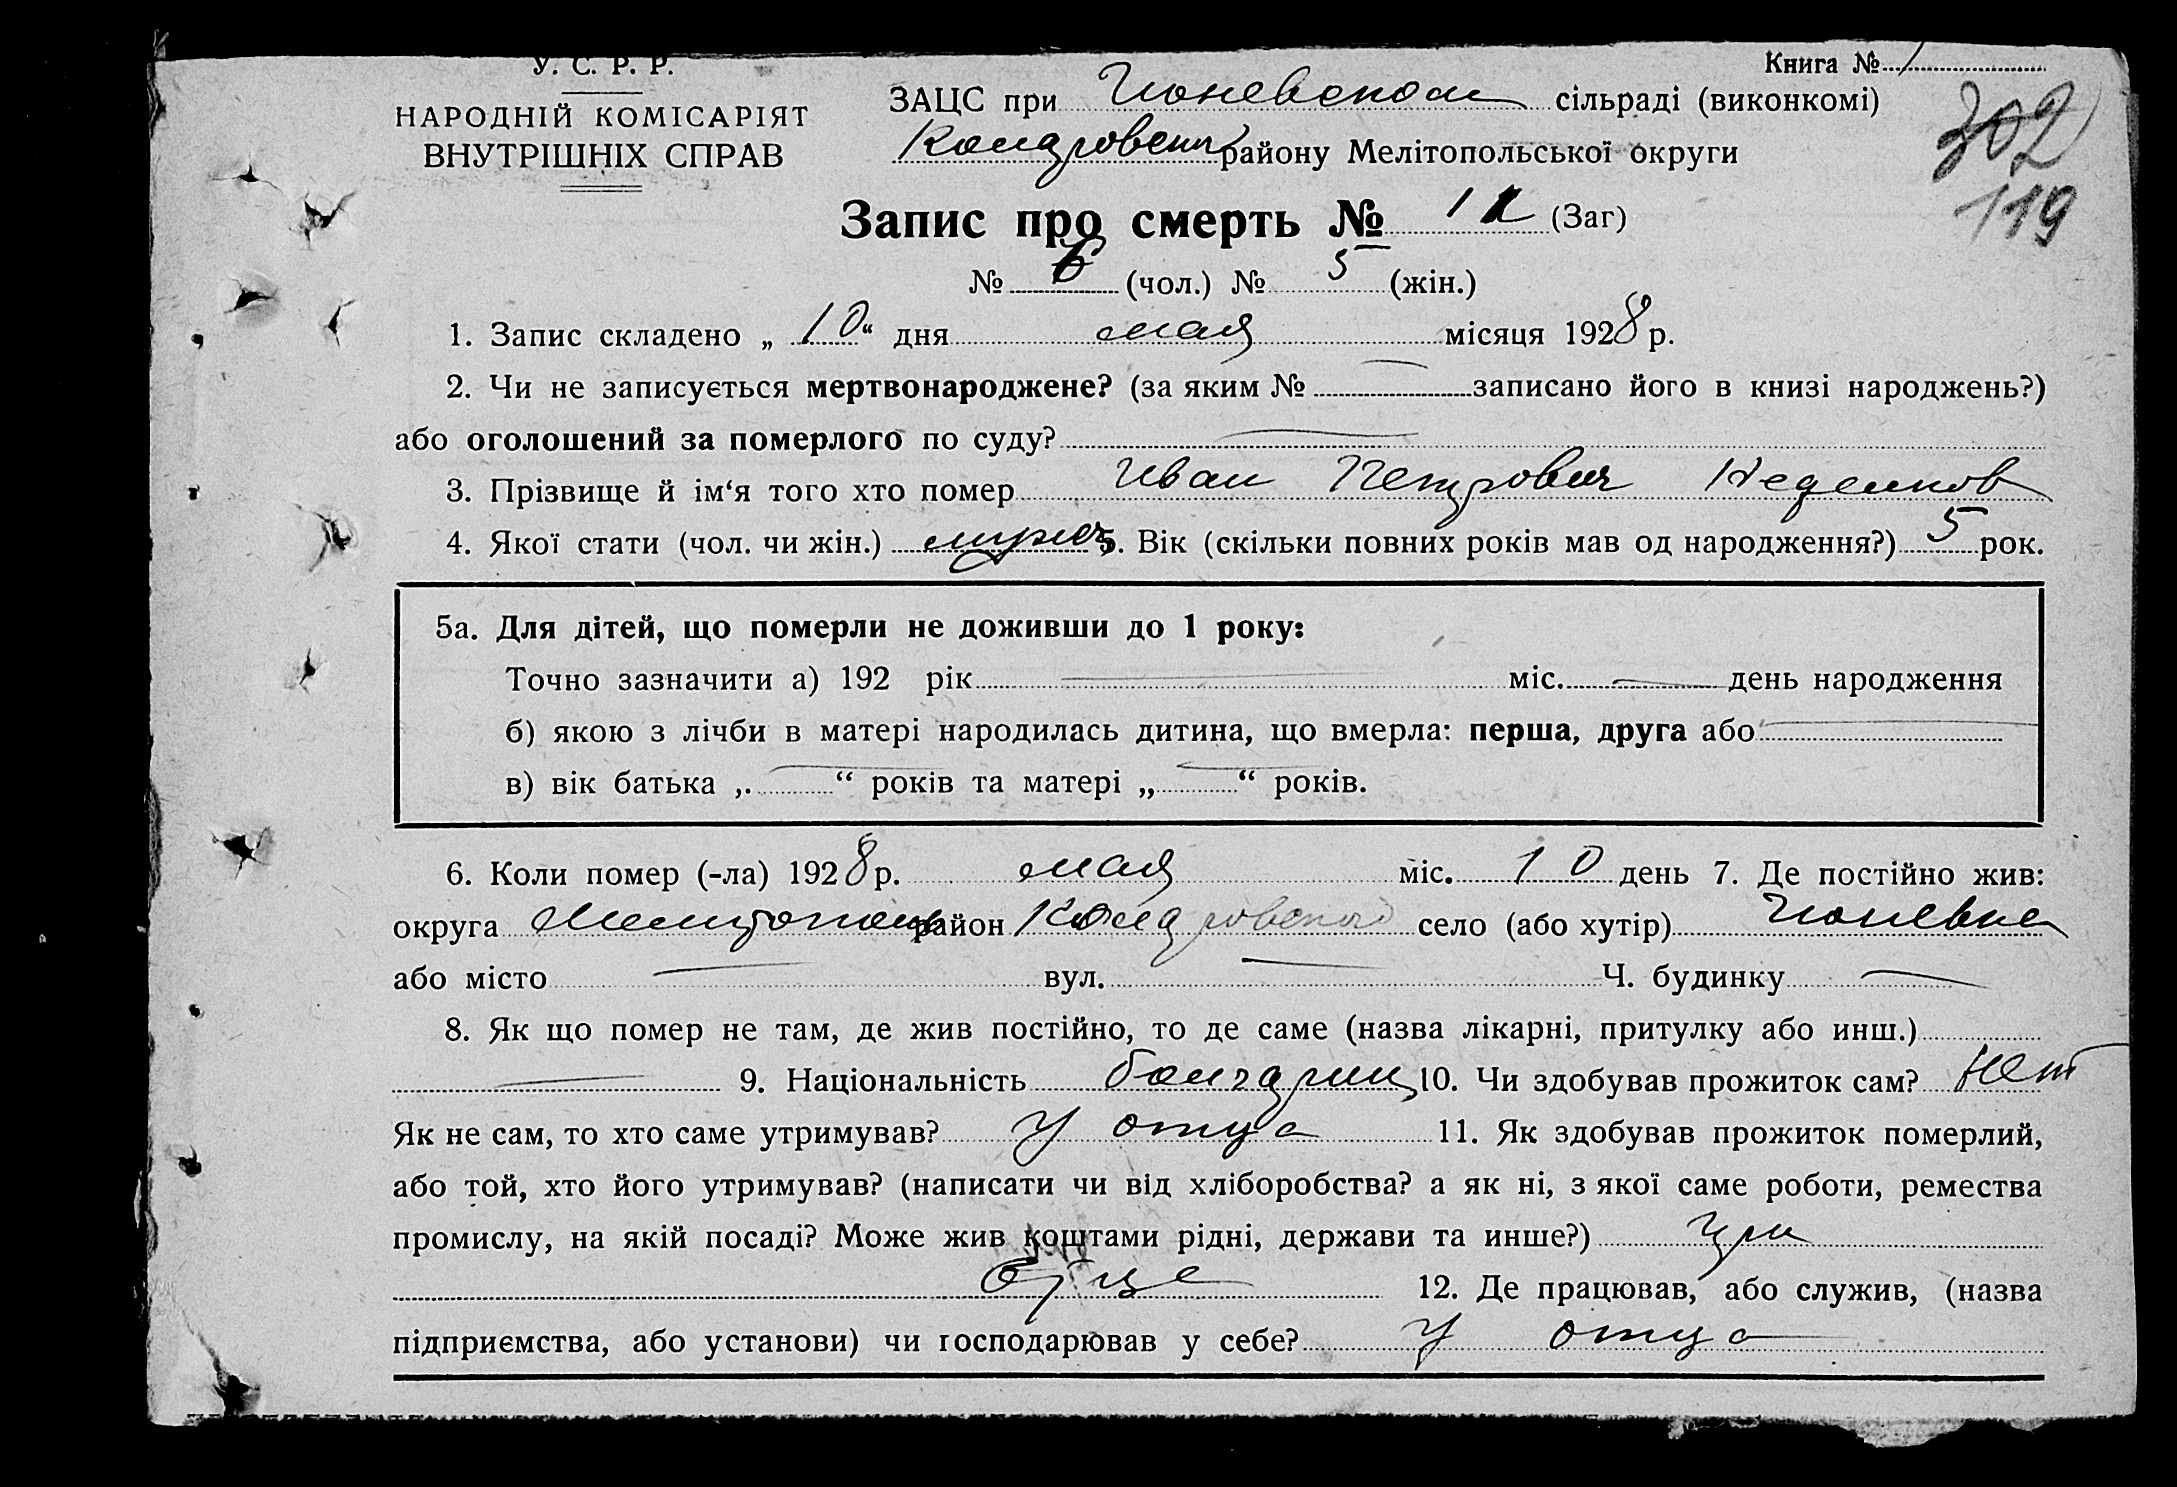 У. С. Р. Р.
Книга № 1
НАРОДНІЙ КОМІСАРІЯТ
ВНУТРІШНІХ СПРАВ
ЗАЦС при сільраді (виконкомі)
району Мелітопольської округи
302
119
Запис про смерть № (Заг)
№ 6 (чол.) № 5 (жін.)
1. Запис складено „ 10 “ дня мая місяця 1928 р.
2. Чи не записується мертвонароджене? (за яким № записано його в книзі народжень?)
або оголошений за померлого по суду?
3. Прізвище й ім‘я того хто помер Иван Петрович
4. Якої стати (чол. чи жін.) 5. Вік (скільки повних років мав од народження?) 5 рок.
5а. Для дітей, що померли не доживши до 1 року:
Точно зазначити а) 192 рік міс. день народження
б) якою з лічби в матері народилась дитина, що вмерла: перша, друга або
в) вік батька „ “ років та матері „ “ років.
6. Коли помер (-ла) 1928 р. мая міс. 10 день 7. Де постійно жив:
округа район село (або хутір)
або місто вул. Ч. будинку
8. Як що помер не там, де жив постійно, то де саме (назва лікарні, притулку або инш.)
9. Національність 10. Чи здобував прожиток сам? Нет
Як не сам, то хто саме утримував? У отца 11. Як здобував прожиток померлий,
або той, хто його утримував? (написати чи від хліборобства? а як ні, з якої саме роботи, ремества
промислу, на якій посаді? Може жив коштами рідні, держави та инше?) при
отце 12. Де працював, або служив, (назва
підприємства, або установи) чи господарював у себе? У отца